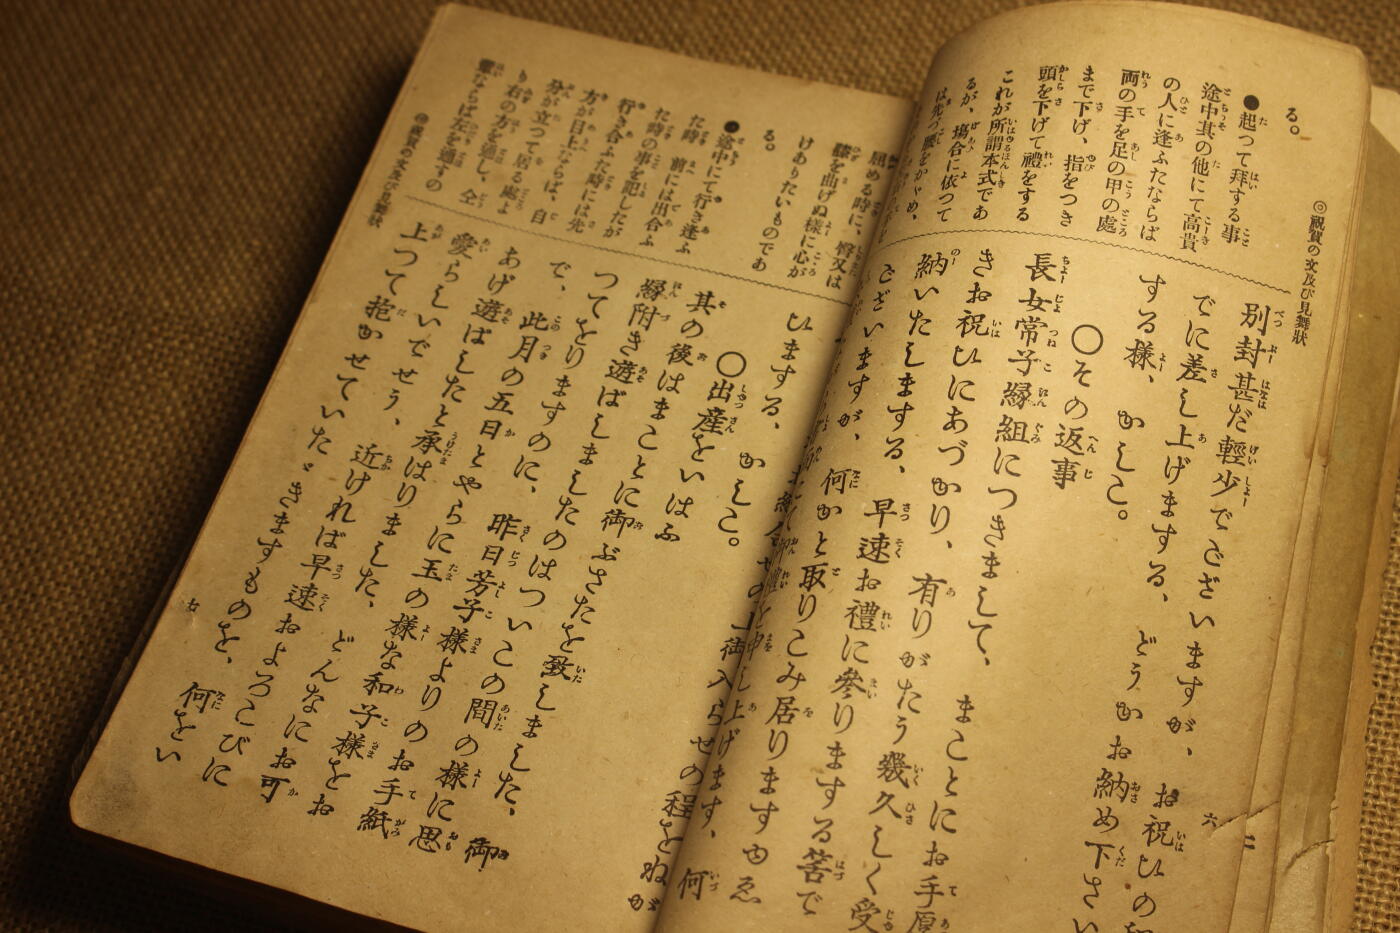 ◎祝賀の文及び見舞狀
る。
●起つて拜する事
途中其の他にて高貴
の人に逢ふたならば
両の手を足の甲の處
まで下げ、指をつき
頭を下げて禮をする
これが所謂本式であ
るが、塲合に依つて
は先づ腰をかゞめ、
別封甚だ輕少でございますが、お祝ひの
でに差し上げまする、どうかお納め下さい
する樣、かしこ。
六二
〇その返事
長女常子縁組につきまして、まことにお手厚
きお祝ひにあづかり、有りがたう幾久しく受
納いたしまする、早速お禮に參りまする筈で
ございますが、何かと取りこみ居りますゆゑ
申し上げます、何
御入らせの程をねが
屈める時に、臀又は
膝を曲げぬ樣に心が
けありたいものであ
る。
●途中にて行き逢ふ
た時 前には出合ふ
た時の事を記したが
行き合ふた時には先
方が目上ならば、自
分が立つて居る處よ
り右の方を通し、全
輩ならば左を通すの
◎祝賀の文及び見舞狀
ひまする、かしこ。
〇出産をいはふ
其の後はまことに御ぶさたを致しました、御
縁附き遊ばしましたのはついこの間の樣に思
つてをりますのに、昨日芳子樣よりのお手紙
で、此月の五日とやらに玉の樣な和子樣をお
あげ遊ばしたと承はりました、どんなにお可
愛らしいでせう、近ければ早速およろこびに
上つて抱かせていたゞきますものを、何をい